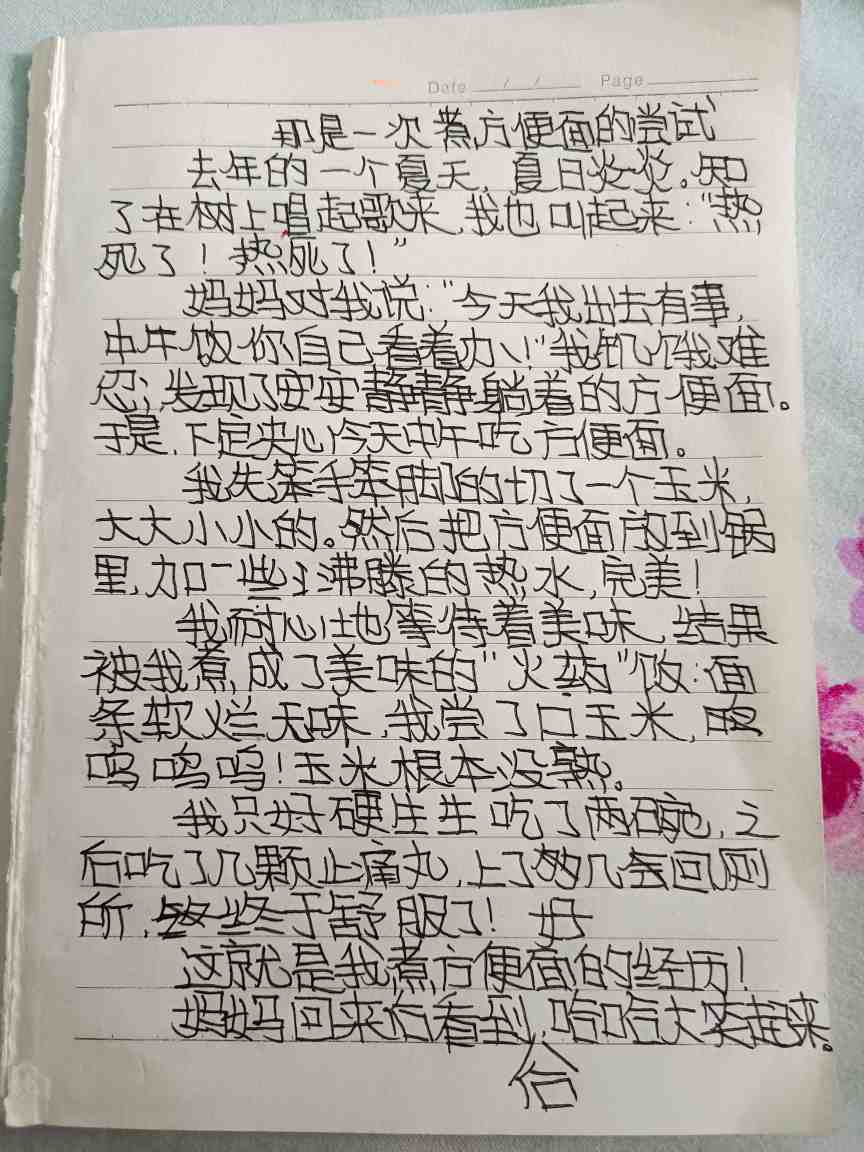 Date / / Page
那是一次煮方便面的尝试
去年的一个夏天，夏日炎炎。知
了在树上唱起歌来，我也叫起来：“热
死了！热死了！”
妈妈对我说：“今天我出去有事，
中午饭你自己看着办！”我饥饿难
忍，发现了安安静静躺着的方便面。
于是，下定决心今天中午吃方便面。
我先笨手笨脚的切了一个玉米，
大大小小的。然后把方便面放到锅
里，加一些沸腾的热水，完美！
我耐心地等待着美味，结果
被我煮成了美味的“火药”饭：面
条软烂无味，我尝了口玉米，
呜呜呜！玉米根本没熟。
我只好硬生生吃了两碗，之
后吃了几颗止痛丸，上了几回厕
所，终于舒服了！好
这就是我煮方便面的经历！
妈妈回来后看到，哈哈大笑起来。